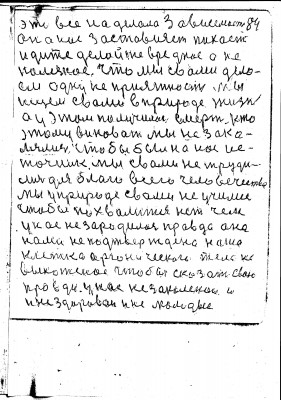 это все наделала зависимость 84
она нас заставляет пакость
идите делайте вредное а не
полезное, что мы свами дела-
ем одну не приятность мы
ищем свами в природе жизн
а у этом получаем смерт. кто
этому виноват мы не зака-
лились, чтобы был на нас ис-
точник, мы свами не труди-
лися для блага всего человечества
мы у природе свами не учимся
чтобы похвалится нет чем
у нас не зародилась правда она
нами не подтверждена наша
клетка органического тела не
выкотское чтобы сказат свою
правду. у нас не закалённое и
и не здоровая и не молодые